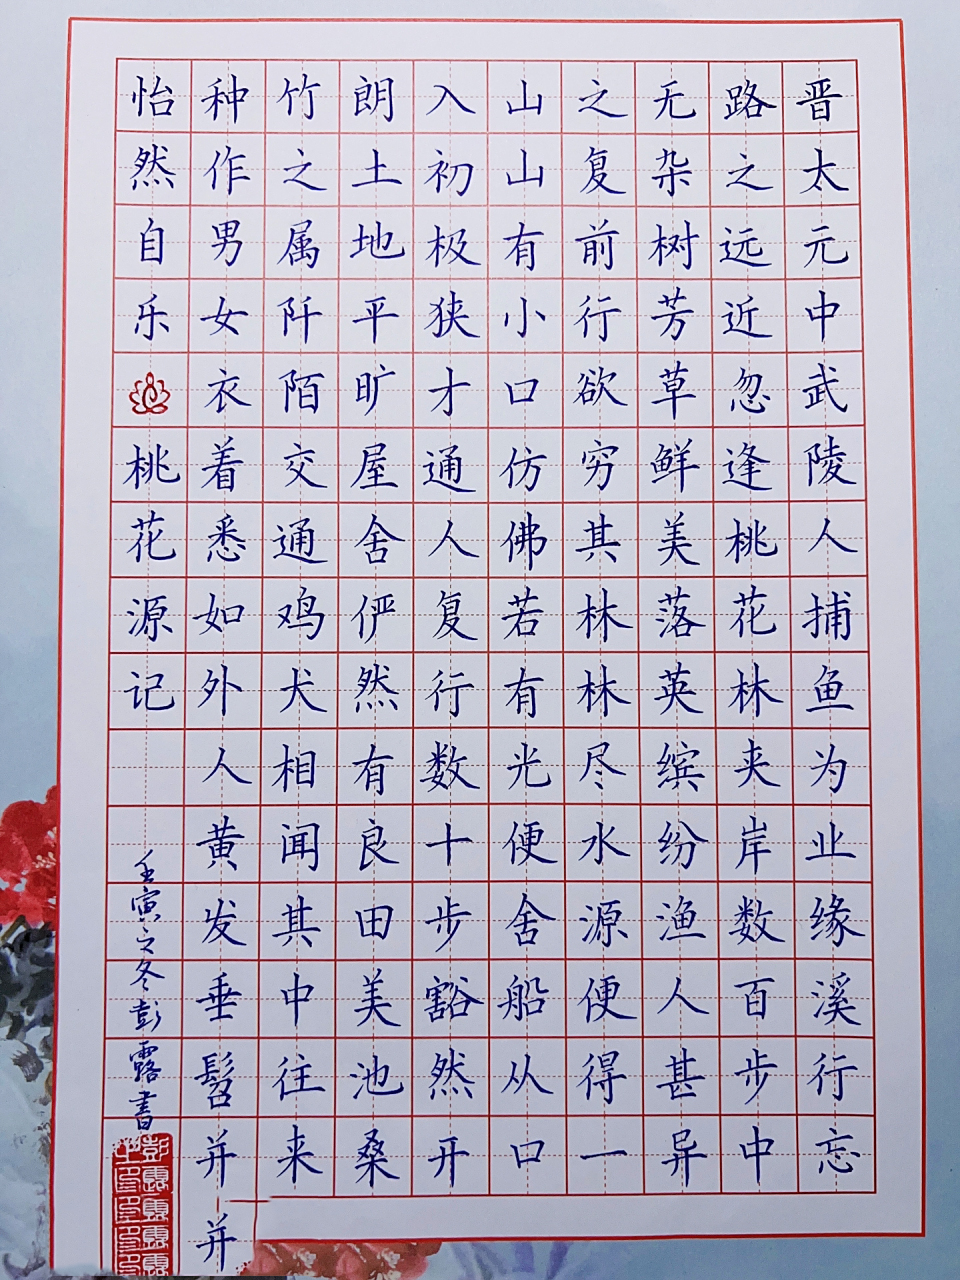 晋太元中武陵人捕鱼为业缘溪行忘
路之远近忽逢桃花林夹岸数百步中
无杂树芳草鲜美落英缤纷渔人甚异
之复前行欲穷其林林尽水源便得一
山山有小口仿佛若有光便舍船从口
入初极狭才通人复行数十步豁然开
朗土地平旷屋舍俨然有良田美池桑
竹之属阡陌交通鸡犬相闻其中往来
种作男女衣着悉如外人黄发垂髫并并
怡然自乐 桃花源记
壬寅之冬彭露書